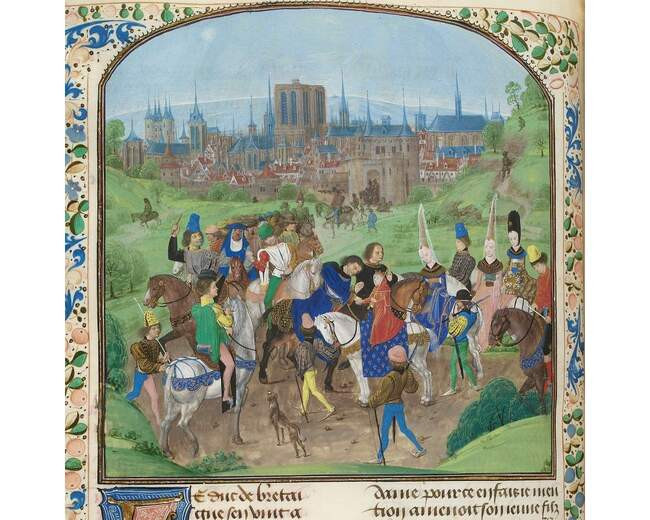 Le duc de bretai
gne sen vint a
dame pour ce en faisie men
tion a menoit son ieune filz